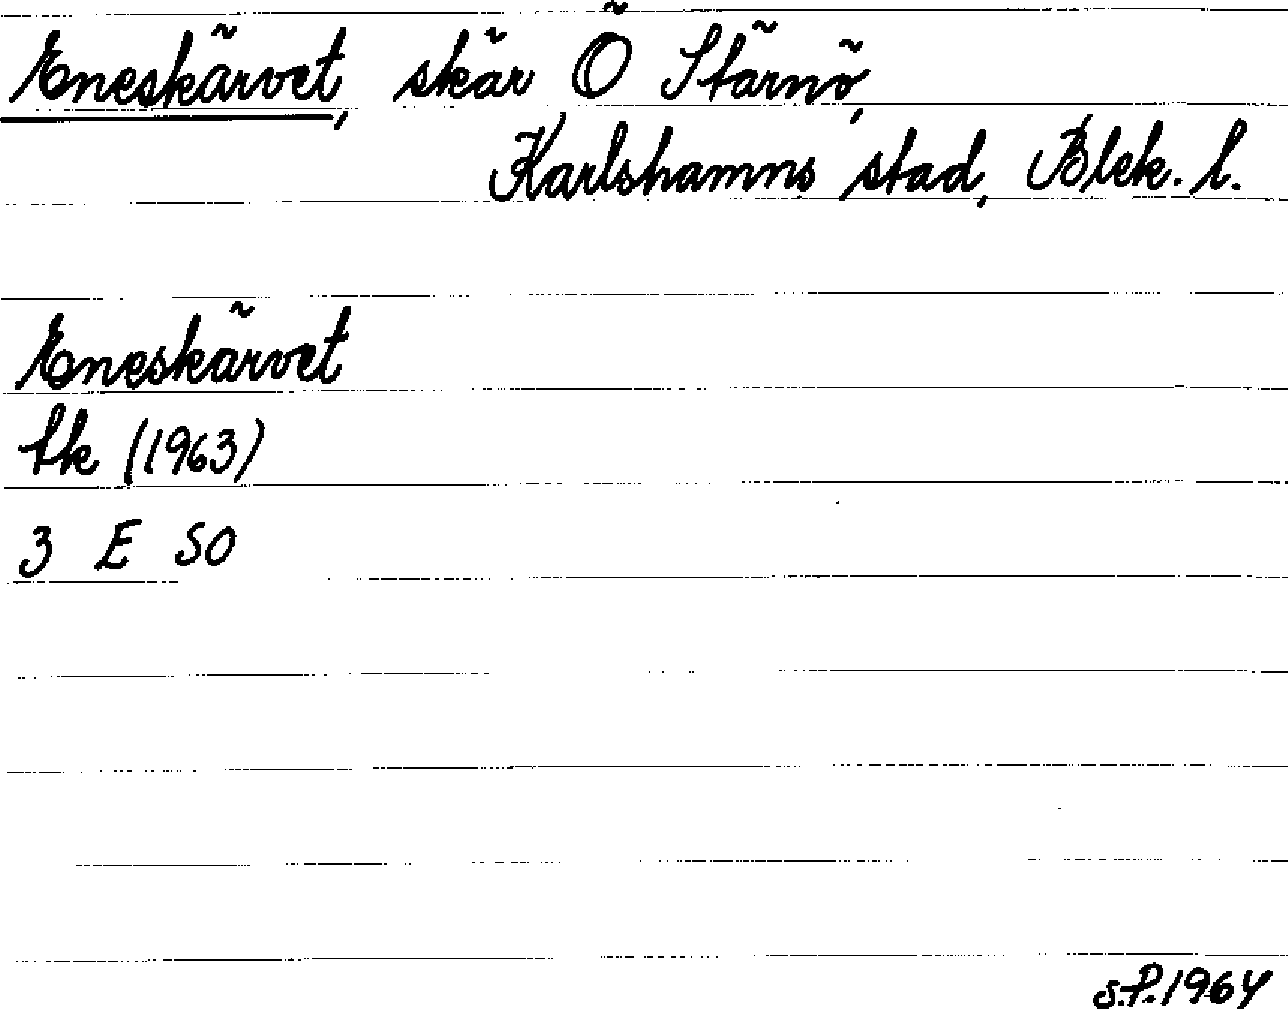 Eneskärvet, skär Ö Stärnö,
Karlshamns stad, Blek. l.
Eneskärvet
Sk (1963)
3 E SO
S.P. 1964